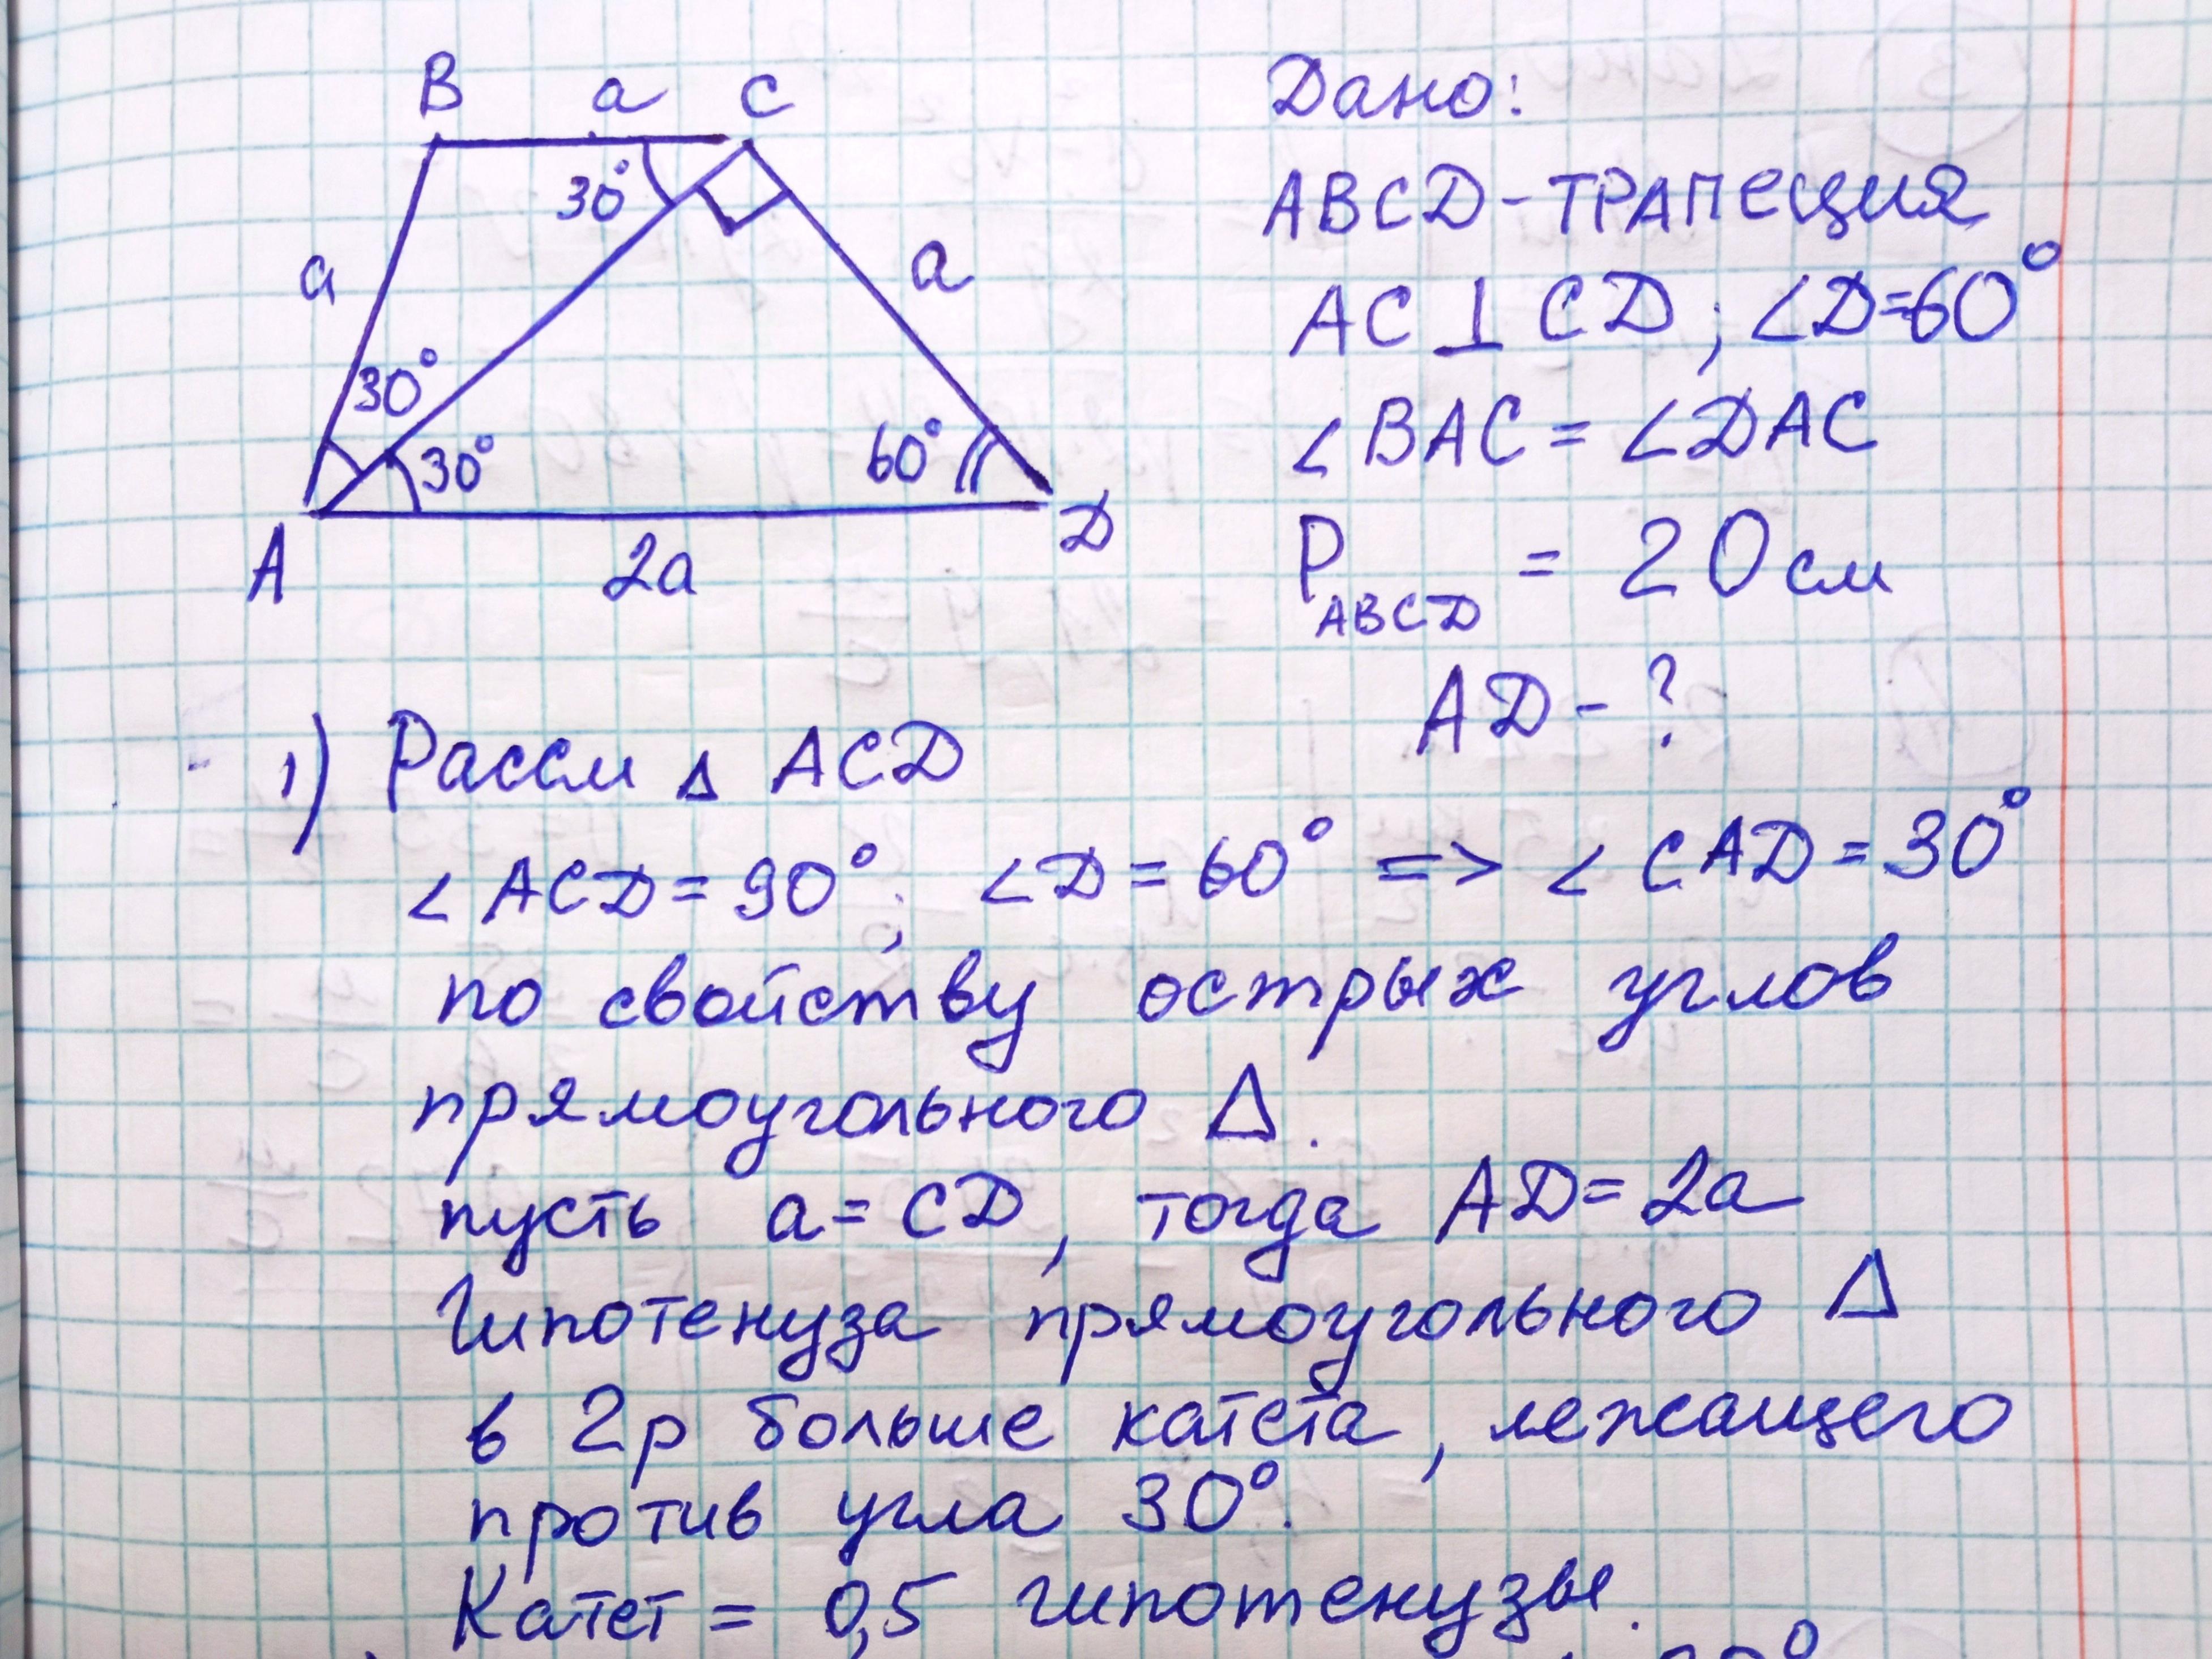 B a C
30°
a
a
30°
30°
60°
A 2a D
Дано:
ABCD-трапеция
AC⊥CD; ∠D=60°
∠BAC = ∠DAC
P ABCD = 20 см
AD-?
1) Рассм Δ ACD
∠ACD=90°; ∠D=60° => ∠CAD=30°
по свойству острых углов
прямоугольного Δ.
пусть a=CD, тогда AD=2a
Гипотенуза прямоугольного Δ
в 2р больше катета, лежащего
против угла 30°.
Катет = 0,5 гипотенузы.